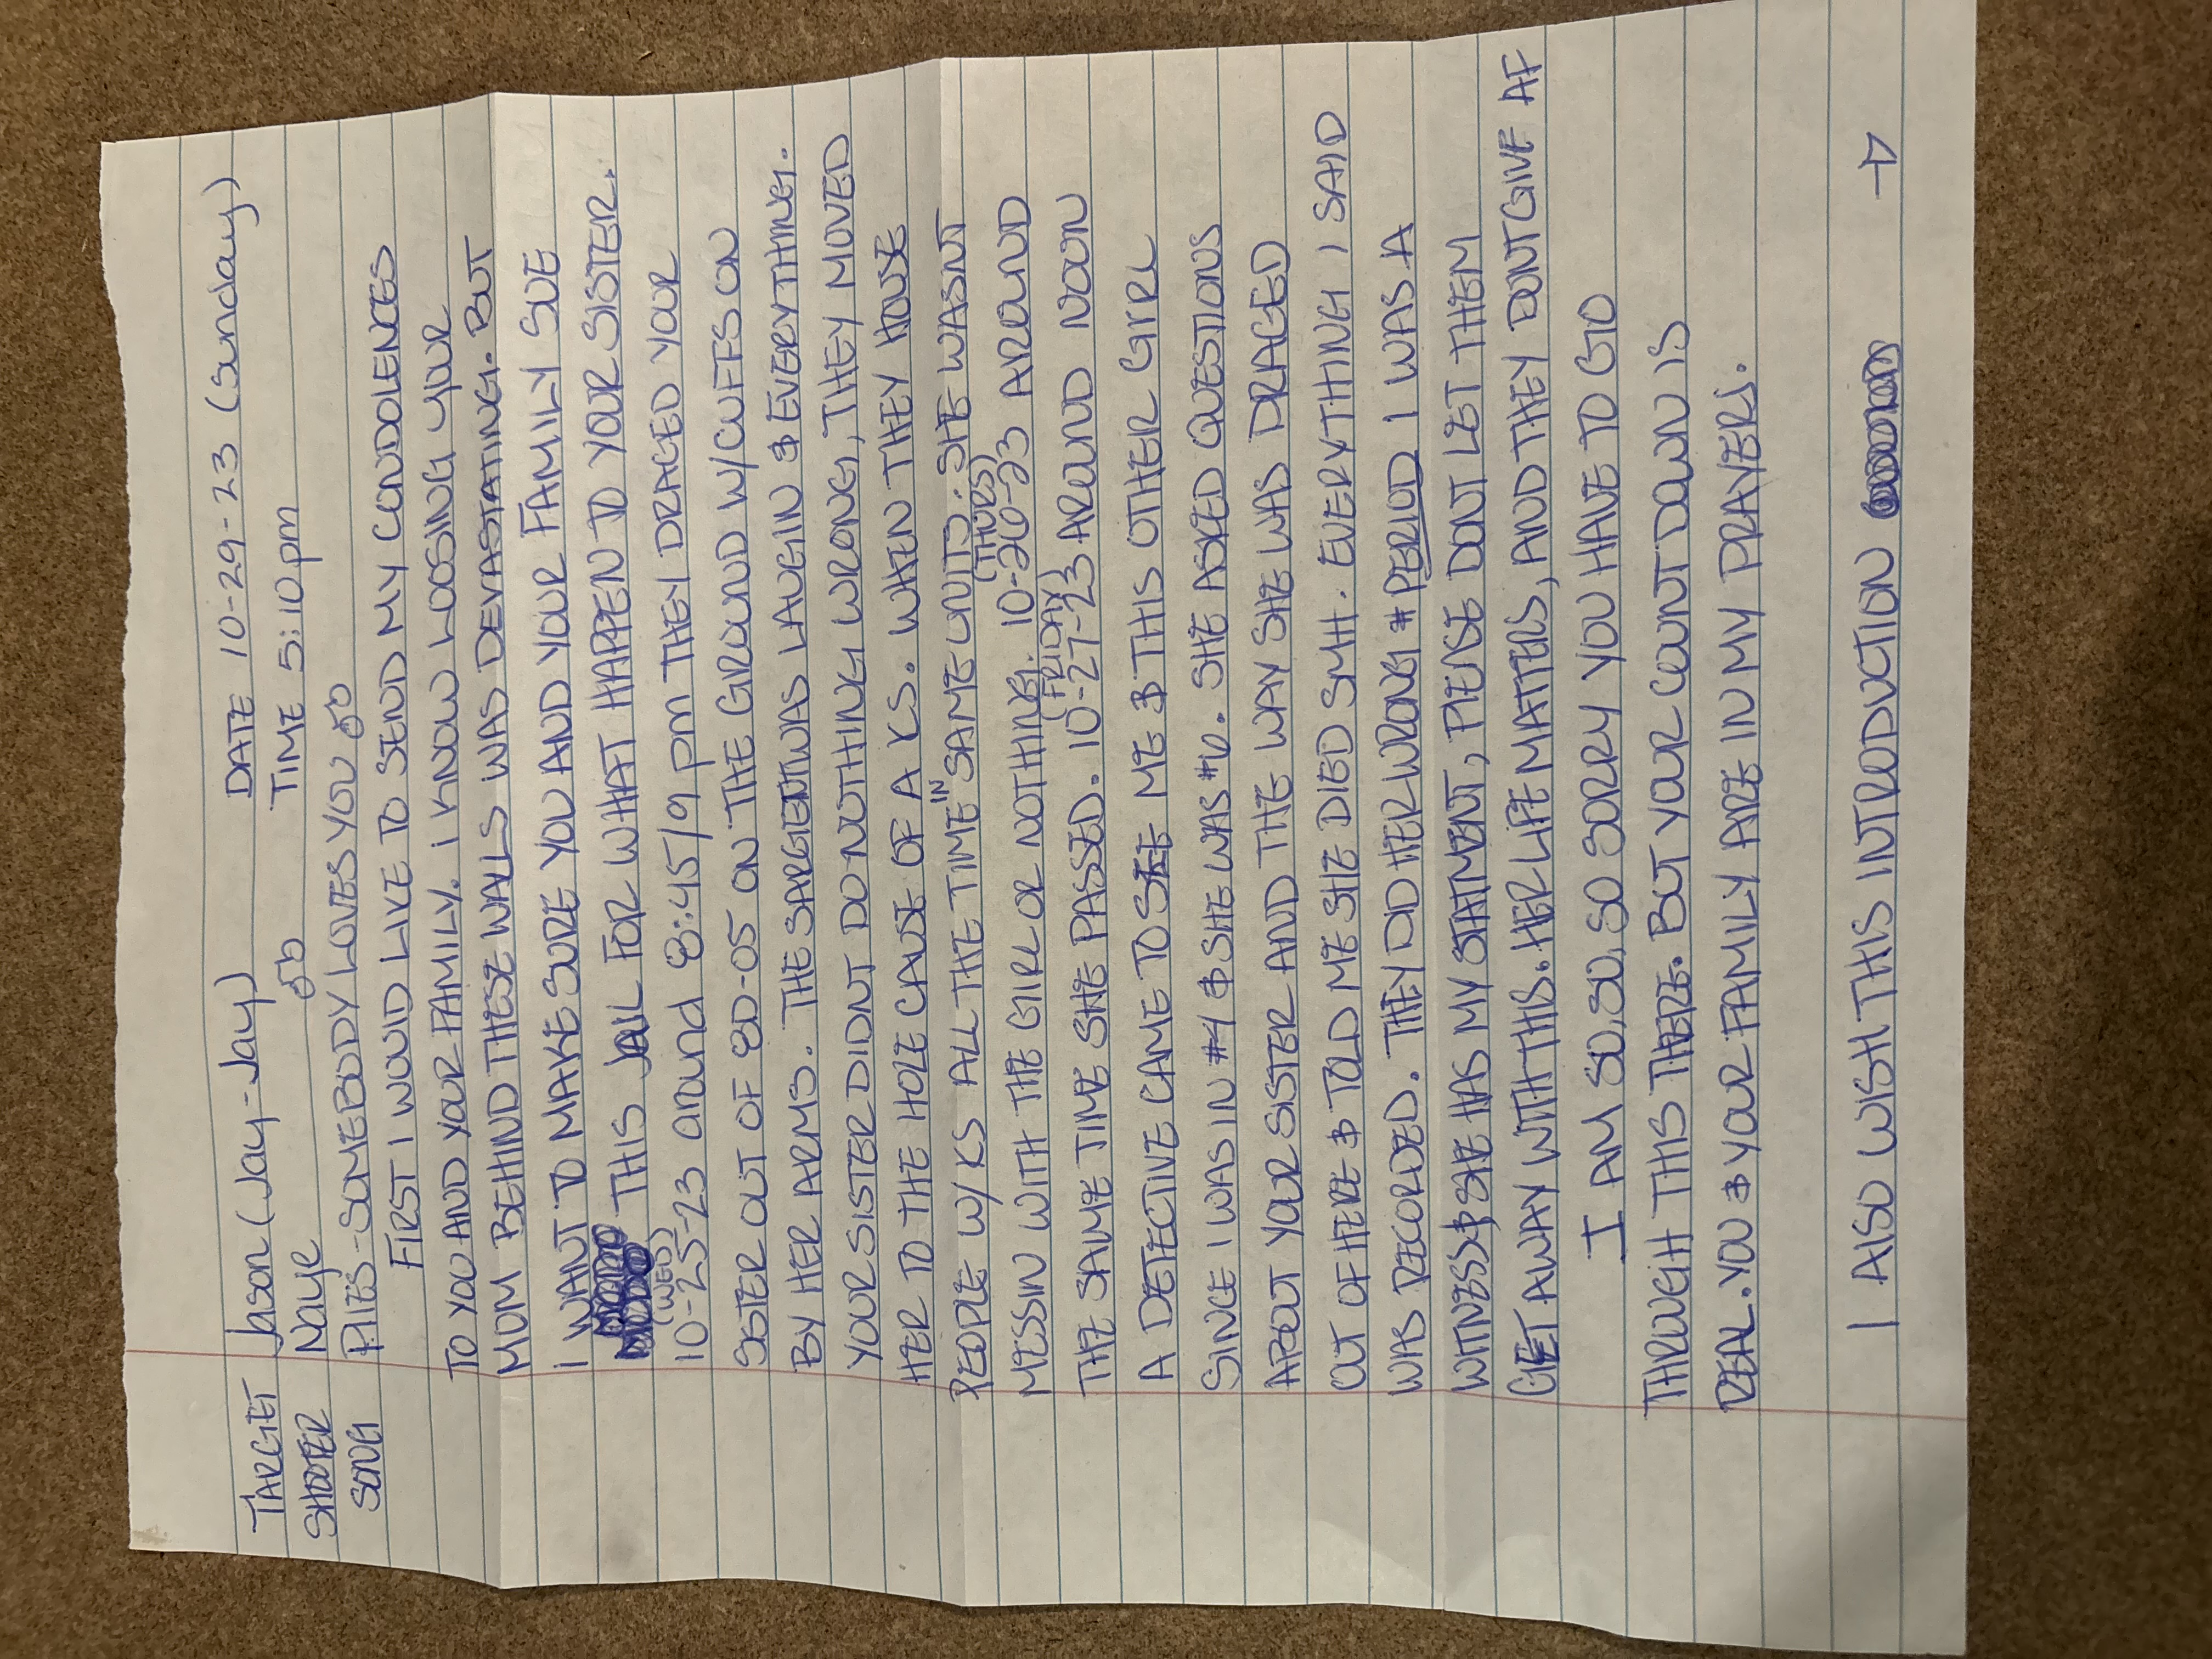 TARGET Jason (Jay-Jay) DATE 10-29-23 (Sunday)
SHOOTER Naye TIME 5:10pm
SONG PlIES-SOMEBODY LOVES YOU
FIRST I WOUlD LIKE TO SEND MY CONDOLENCES
TO YOU AND YOUR FAMILY. i KNOW LOOSING YOUR
MOM BEHIND THESE WALLS WAS DEVASTATING. BUT
I WANT TO MAKE SURE YOU AND YOUR FAMILY SUE
THIS JAIL FOR WHAT HAPPEN TO YOUR SISTER.
(WED)
10-25-23 around 8:45/9 pm THEY DRAGED YOUR
SISTER OUT OF 8D-05 ON THE GROUND W/CUFFS ON
BY HER ARMS. THE SARGENT WAS LAUGIN & EVERYTHING.
YOUR SISTER DIDNT DO NOTHING WRONG, THEY MOVED
HER TO THE HOLE CAUSE OF A KS. WHEN THEY HOUSE
PEOPLE W/ KS ALL THE TIME IN SAME UNITS. SHE WASNT
(THURS)
MESSIN WITH THE GIRL OR NOTHING. 10-26-23 AROUND
(FRIDAY)
THE SAME TIME SHE PASSED. 10-27-23 AROUND NOON
A DETECTIVE CAME TO SEE ME & THIS OTHER GIRL
SINCE I WAS IN #4 & SHE WAS #6. SHE ASKED QUESTIONS
ABOUT YOUR SISTER AND THE WAY SHE WAS DRAGED
OUT OF HERE & TOLD ME SHE DIED SMH. EVERYTHING I SAID
WAS RECORDED. THEY DID HER WRONG # PERIOD I WAS A
WITNESS & SHE HAS MY STATMENT, PLEASE DONT LET THEM
GET AWAY WITH THIS. HER LIFE MATTERS, AND THEY DONT GIVE AF
I AM SO, SO, SO SORRY YOU HAVE TO GO
THROUGH THIS THERE. BUT YOUR COUNT DOWN IS
REAL. YOU & YOUR FAMILY ARE IN MY PRAYERS.
I AlSO WISH THIS INTRODUCTION →